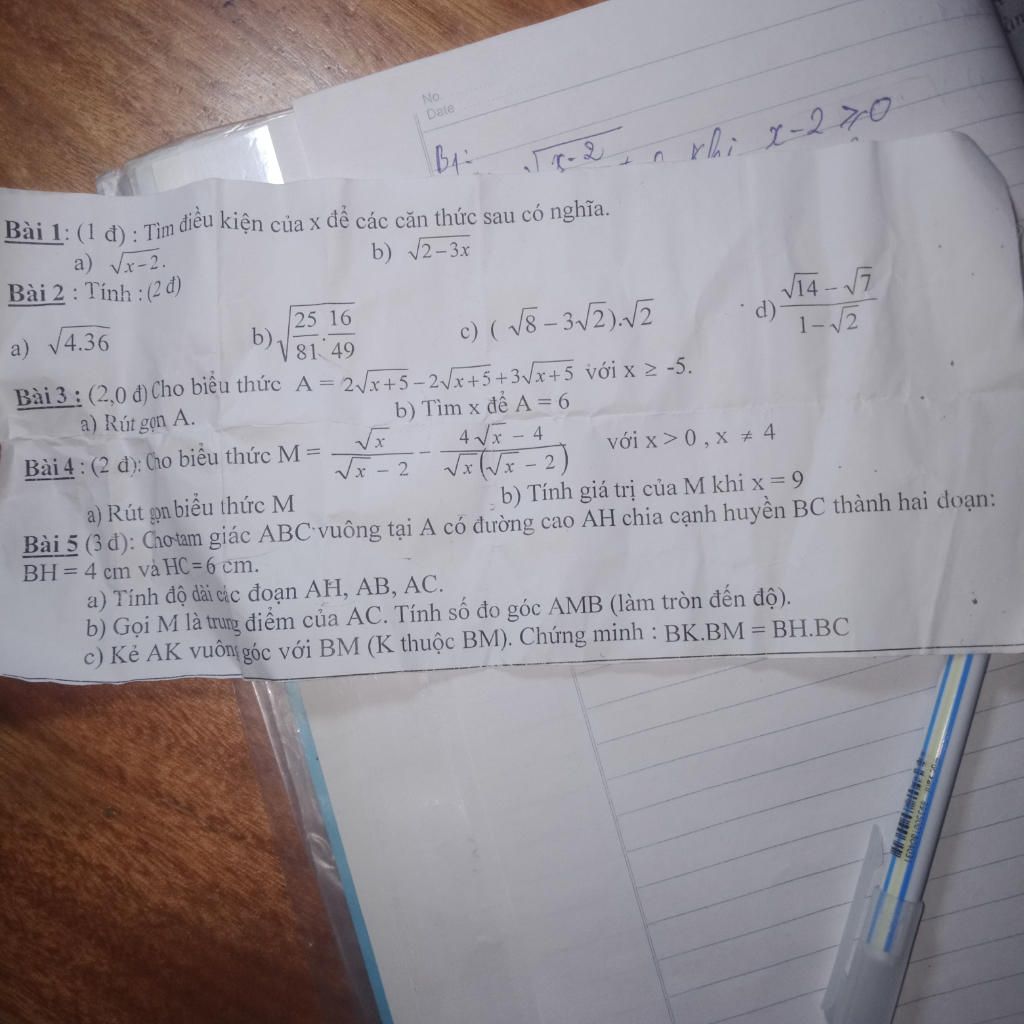 No.
Date
B1: √x-2 khi x-2 ≥ 0
Bài 1: (1 đ) : Tìm điều kiện của x để các căn thức sau có nghĩa.
a) √(x-2). b) √(2-3x)
Bài 2 : Tính : (2 đ)
a) √(4.36) b) √(25/81 . 16/49) c) ( √8 - 3√2).√2 d) (√14 - √7)/(1-√2)
Bài 3 : (2,0 đ) Cho biểu thức A = 2√(x+5) - 2√(x+5) + 3√(x+5) với x ≥ -5.
a) Rút gọn A. b) Tìm x để A = 6
Bài 4 : (2 đ): Cho biểu thức M = √x/(√x - 2) - (4√x - 4)/(√x(√x - 2)) với x > 0 , x ≠ 4
a) Rút gọn biểu thức M b) Tính giá trị của M khi x = 9
Bài 5 (3 đ): Cho tam giác ABC vuông tại A có đường cao AH chia cạnh huyền BC thành hai đoạn:
BH = 4 cm và HC = 6 cm.
a) Tính độ dài các đoạn AH, AB, AC.
b) Gọi M là trung điểm của AC. Tính số đo góc AMB (làm tròn đến độ).
c) Kẻ AK vuông góc với BM (K thuộc BM). Chứng minh : BK.BM = BH.BC